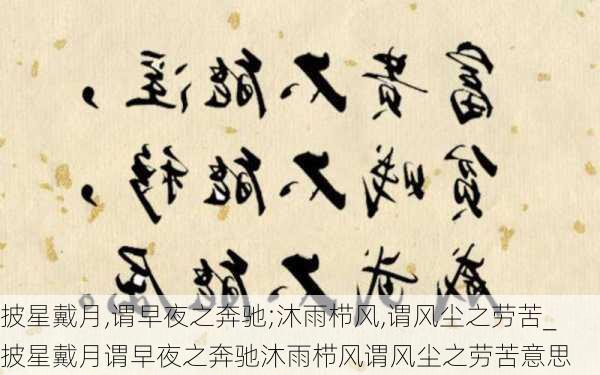 富贵不能淫，
贫贱不能移，
威武不能屈。
披星戴月,谓早夜之奔驰;沐雨栉风,谓风尘之劳苦_
披星戴月谓早夜之奔驰沐雨栉风谓风尘之劳苦意思